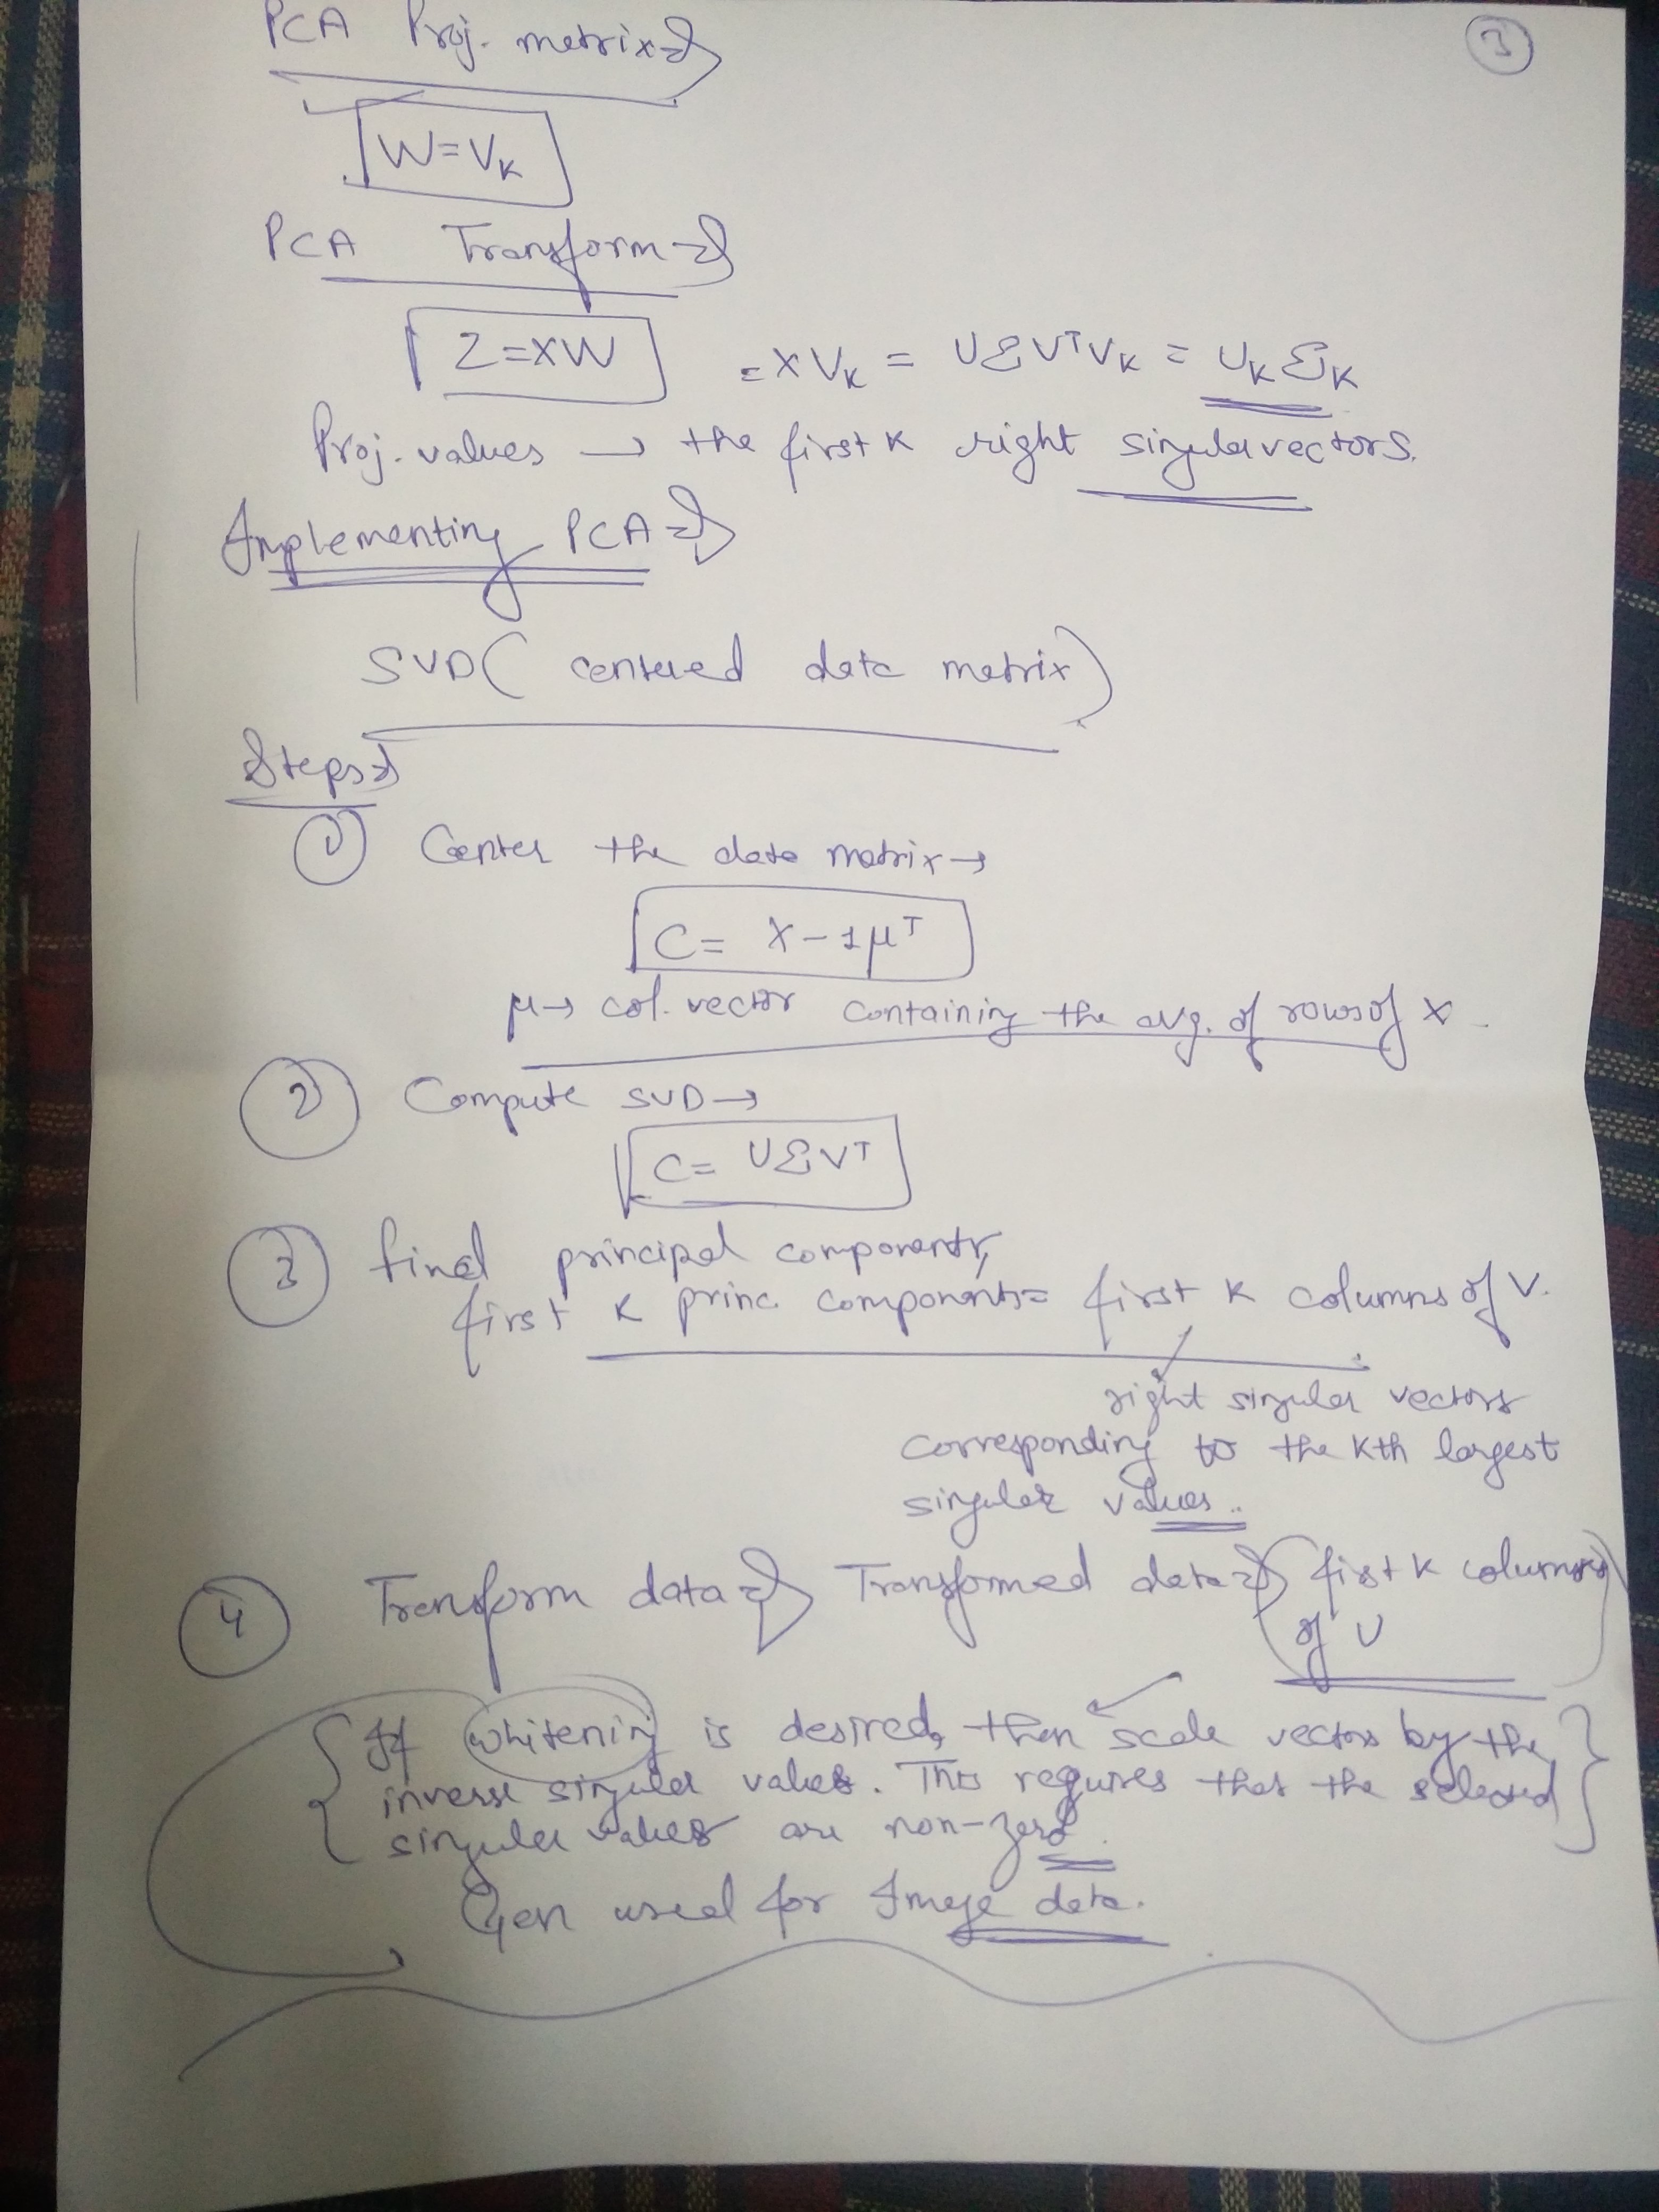 PCA Proj. metrix ⇒
3
W = V_K
PCA Transform ⇒
Z = XW = X V_K = U Σ V^T V_K = U_K Σ_K
Proj. values → the first K right singular vectors.
Implementing PCA ⇒
SVD ( centered data metrix )
Steps ⇒
① Center the data matrix →
C = X - 1μ^T
μ → col. vector containing the avg. of rows of X.
② Compute SVD →
C = U Σ V^T
③ final principal components,
first K princ components = first K columns of V.
right singular vectors
corresponding to the Kth largest
singular values..
④ Transform data ⇒ Transformed data ⇒ ( first K columns
of U )
{ If whitening is desired, then scale vectors by the
inverse singular values. This requires that the selected
singular values are non-zero. }
Gen used for Image data.